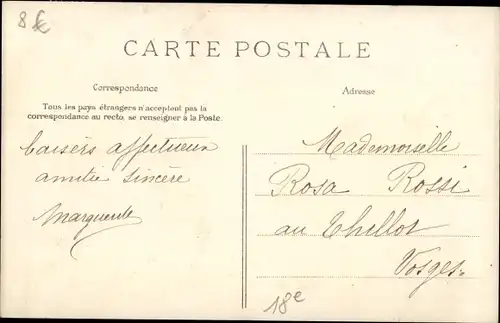 8 €
CARTE POSTALE
Correspondance
Tous les pays étrangers n'acceptent pas la
correspondance au recto, se renseigner à la Poste.
baisers affectueux
amitié sincère
Marguerite
Adresse
Mademoiselle
Rosa Rossi
au Thillot
Vosges
18e